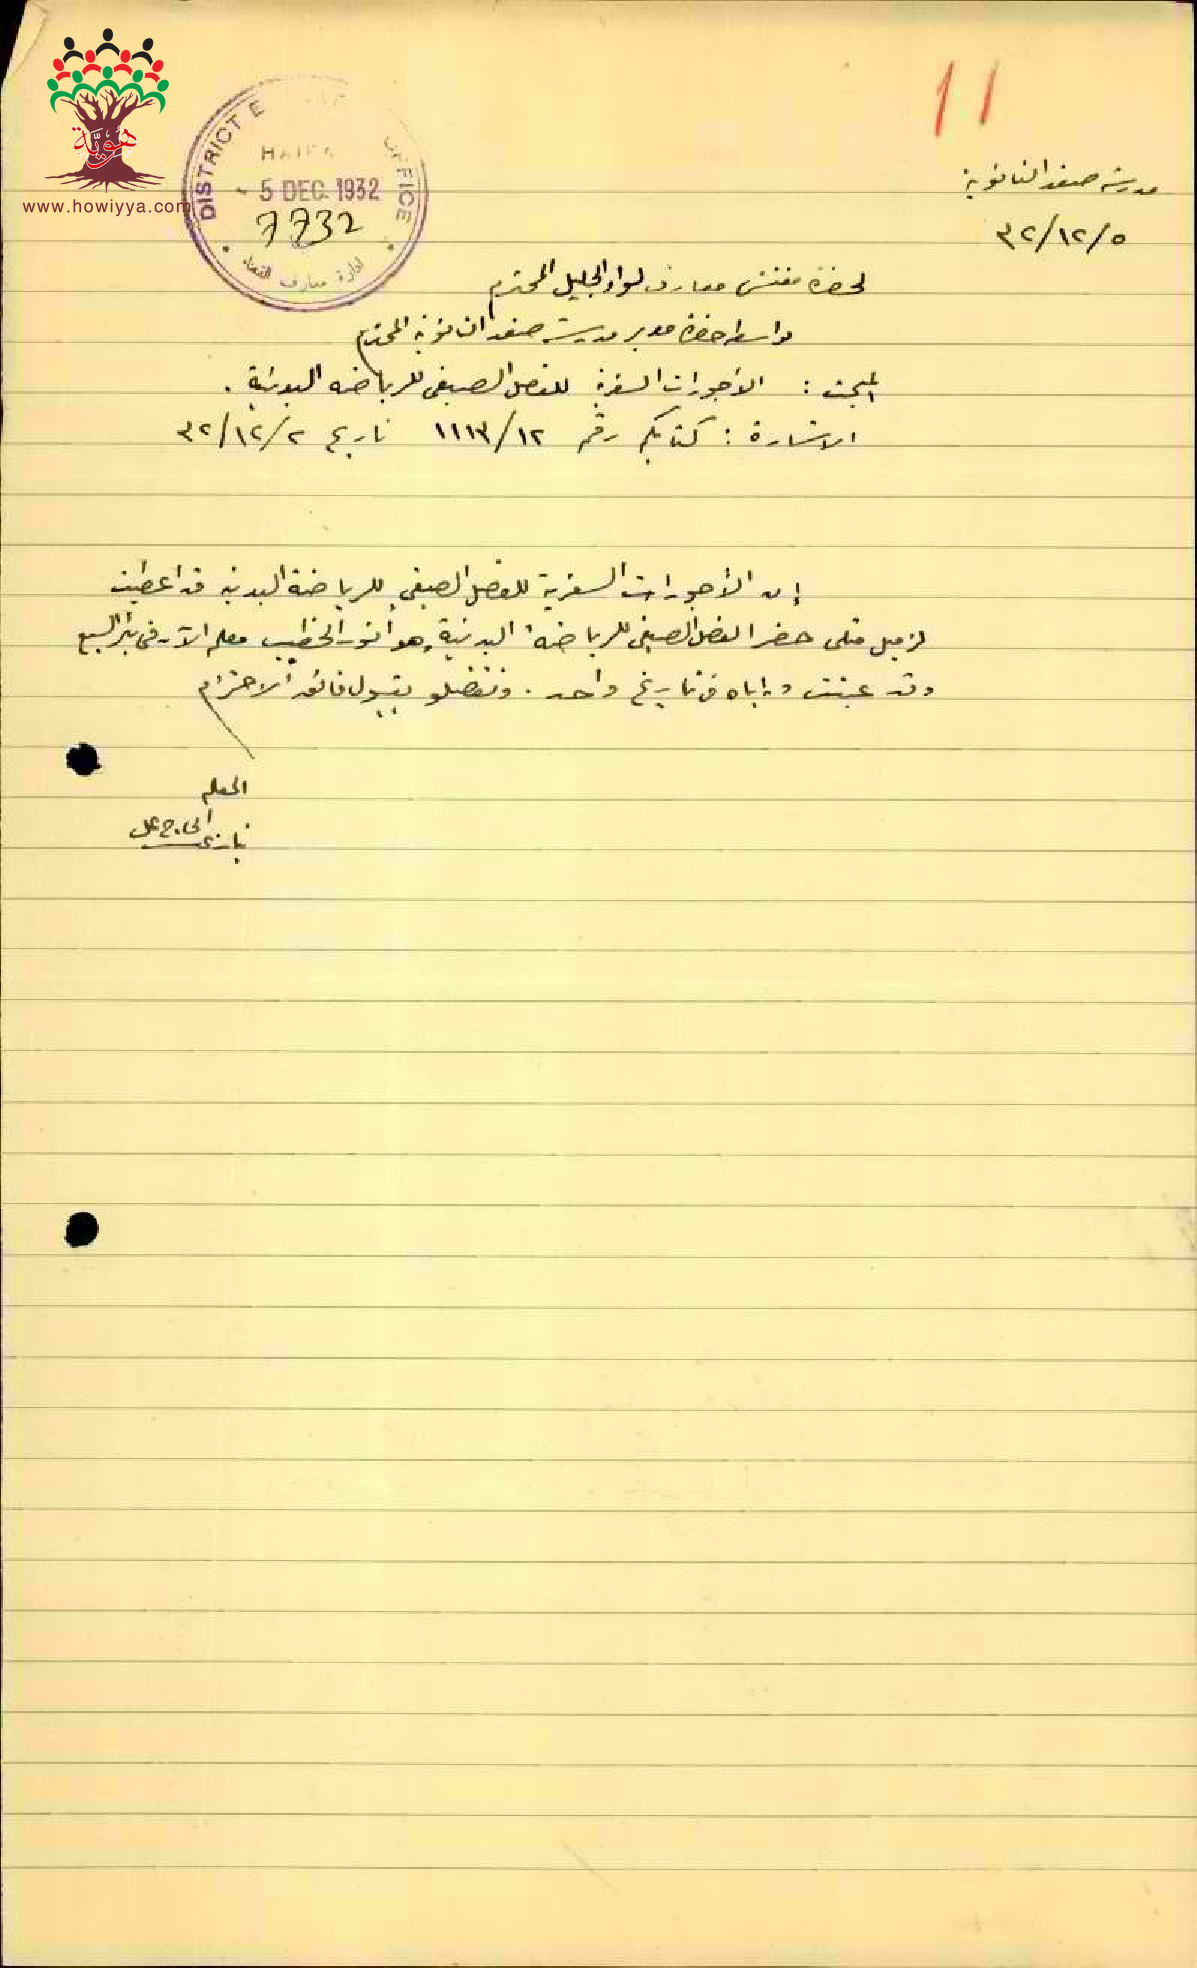 11
هويّة
www.howiyya.com
DISTRICT E OFFICE
HAIFA
5 DEC. 1932
7732
ادارة معارف القضاء
مدرسة صفد الثانوية
٣٢/١٢/٥
لحضرة مفتش معارف لواء الجليل المحترم
بواسطة حضرة مدير مدرسة صفد الثانوية المحترم
المبحث : الأجورات السفرية للفصل الصيفي للرياضة البدنية .
الاشارة : كتابكم رقم ١١١٣/١٢ تاريخ ٣٢/١٢/٢
إن الأجورات السفرية للفصل الصيفي للرياضة البدنية قد اعطيت
لزميل مثلي حضر الفصل الصيفي للرياضة البدنية وهو أنور الخطيب معلم الآن في بئر السبع
وقد عينت واياه في تاريخ واحد . وتفضلو بقبول فائق الاحترام
المعلم
الحاج علي